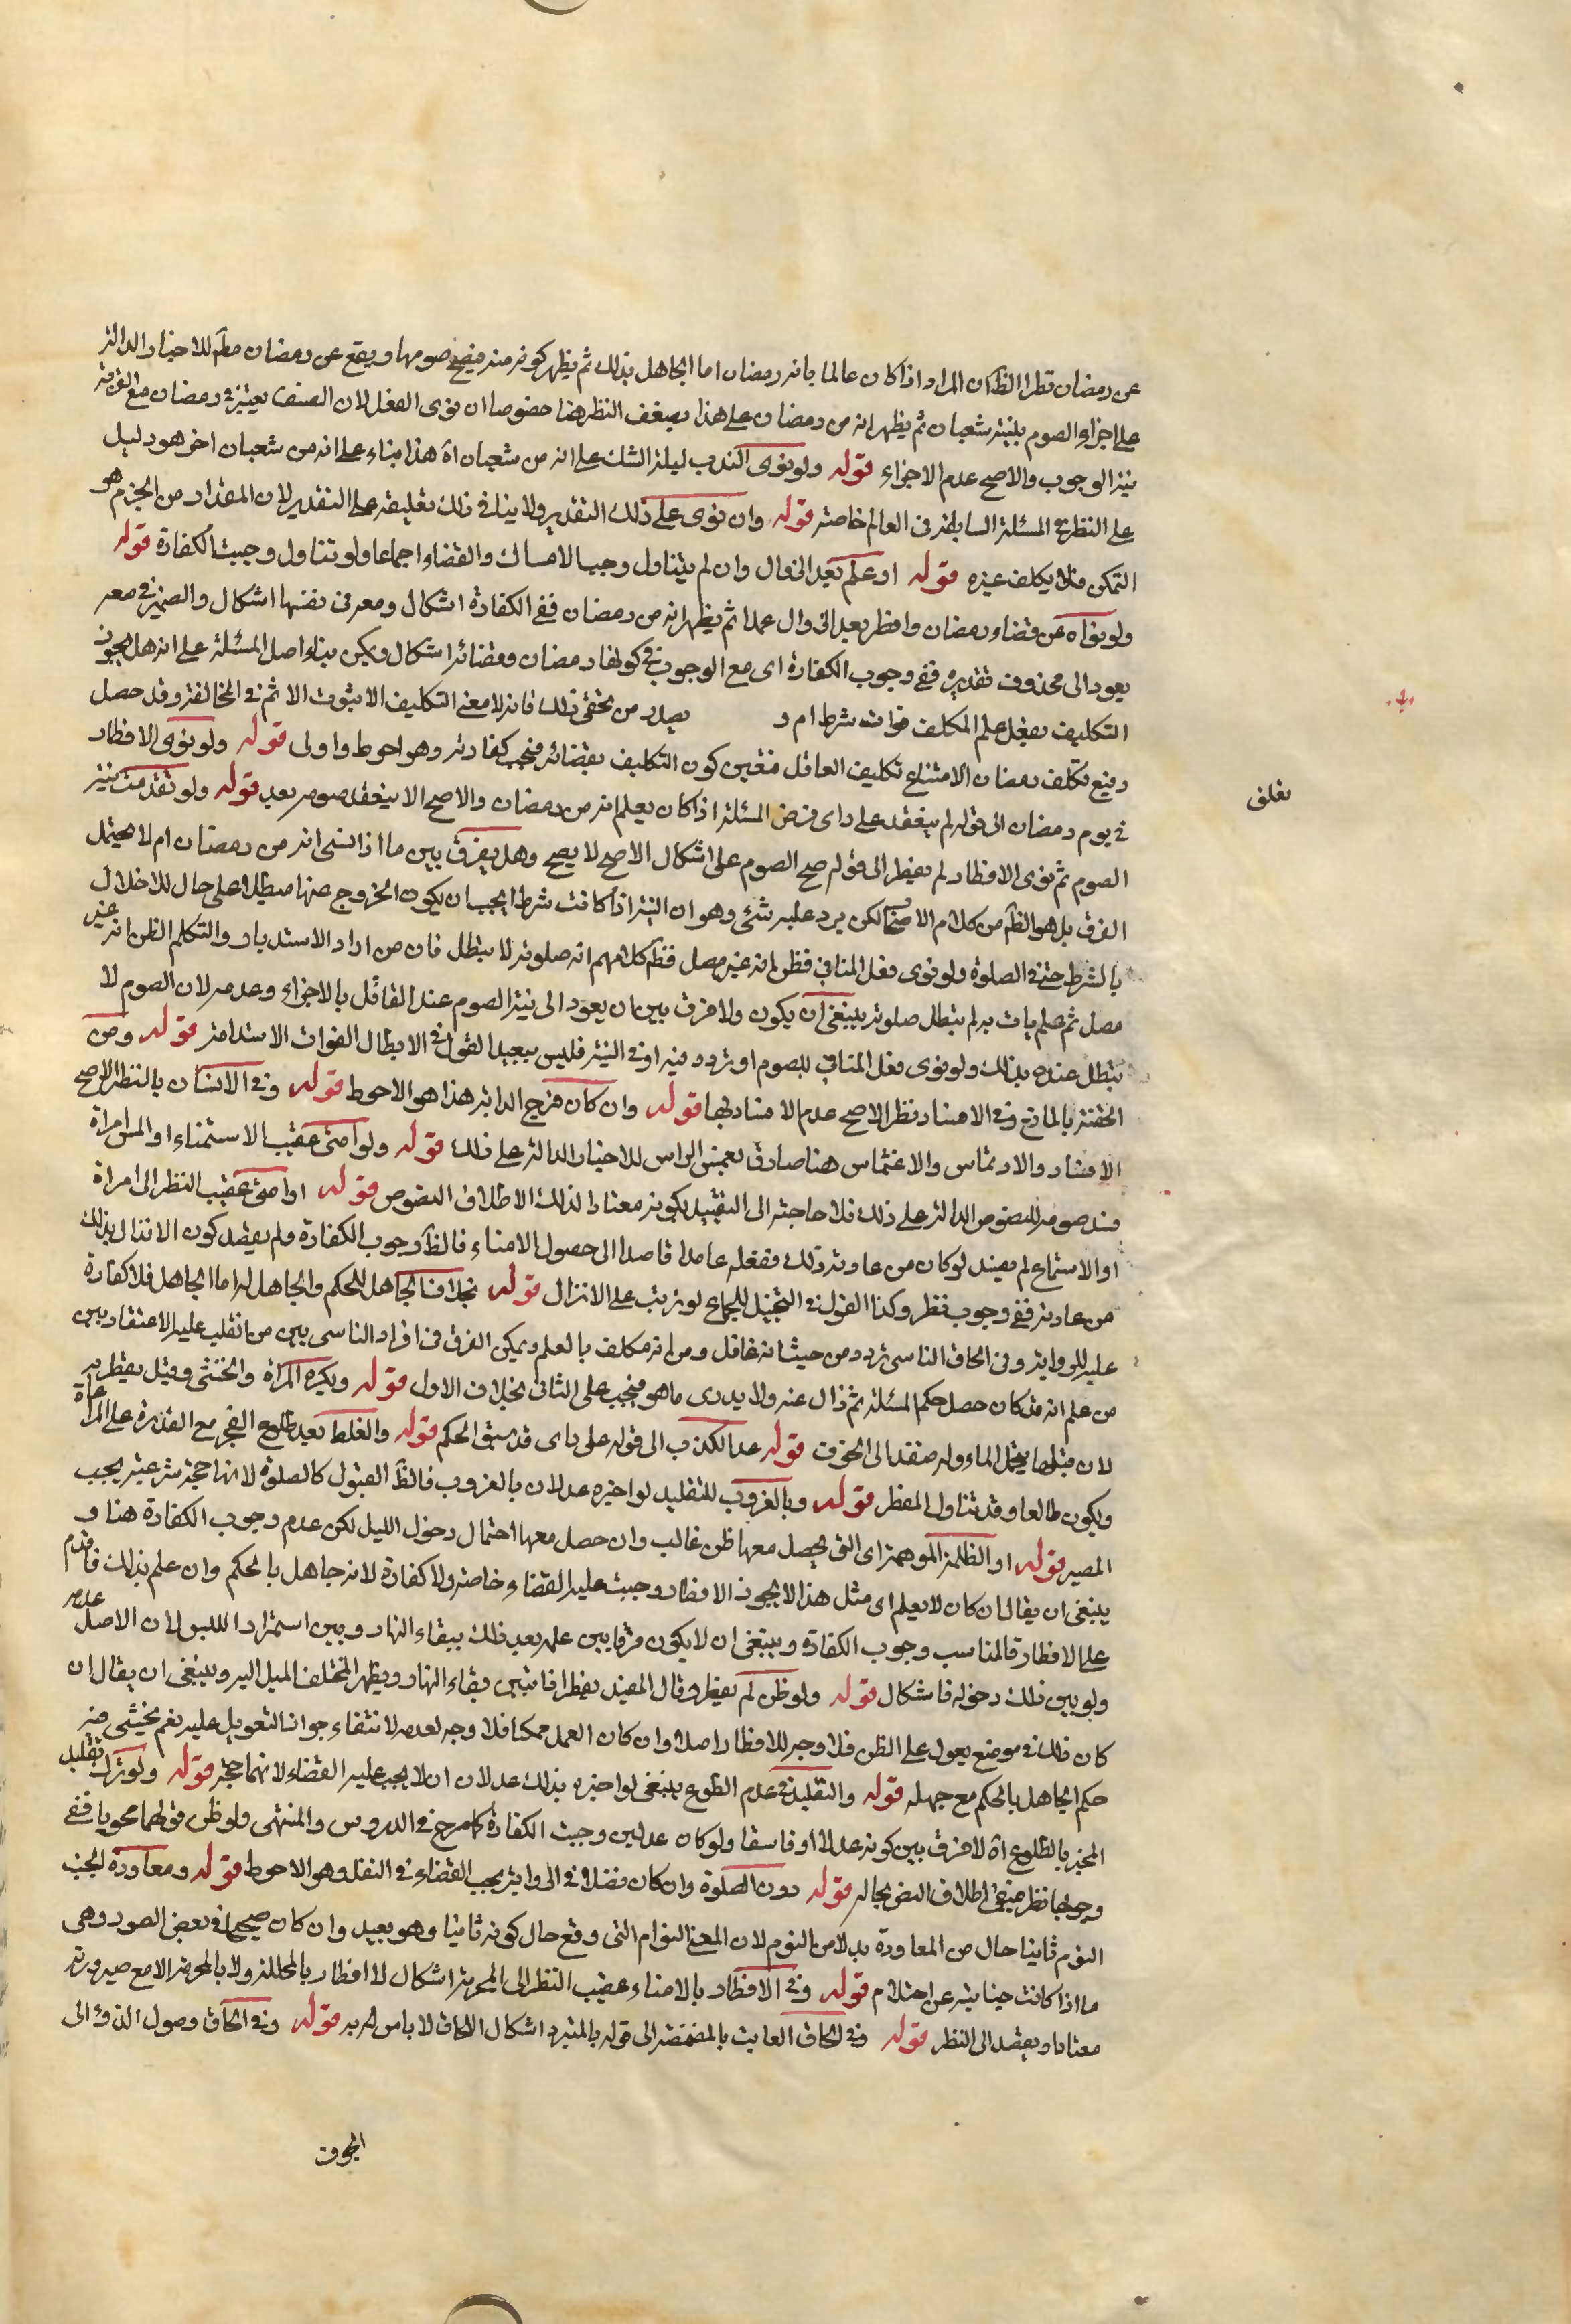 عن رمضان نظر الظان المراد اذا كان عالما بانه رمضان اما الجاهل بذلك ثم يظهر كونه منه فيصح صومها ويقع عن رمضان مطلقا للاخبار الدالة
على اجزاء الصوم بنية شعبان ثم يظهر انه من رمضان على هذا يضعف النظر هنا خصوصا ان نوى الفعل لان المصنف يعتبر في رمضان مع القربة
نية الوجوب والاصح عدم الاجزاء قوله ولو نوى الندب ليلة الشك على انه من شعبان اه هذا بناء على انه من شعبان اخر هو دليل
على النظر في المسئلة السابقة في العالم خاصة قوله وان نوى على ذلك التقدير ولا ينافي ذلك تعليقه على التقدير لان المقدار من الجزم هو
التمكن فلا يكلف غيره قوله او علم بعد الزوال وان لم يتناول وجب الامساك والقضاء اجماعا ولو تناول وجبت الكفارة قوله
ولو نواه عن قضاء رمضان وافطر بعد الزوال عمدا ثم يظهر انه من رمضان ففي الكفارة اشكال ومعرفى نفنها اشكال والضمير في معر
يعود الى محذوف تقديره ففي وجوب الكفارة اى مع الوجوب في كونها رمضان وقضائه اشكال ويمكن بناء اصل المسئلة على انه هل يجوز
التكليف بفعل علم المكلف فوات شرط ام و يصدر من تحقق ذلك فانه لا معنى التكليف الا ثبوت الاثم في المخالفة وقد حصل
ومنع تكلف رمضان لامتناع تكليف الغافل فتعين كون التكليف بقضائه فتجب كفارته وهو احوط واولى قوله ولو نوى الافطار
في يوم رمضان الى قوله لم ينعقد على راى فرض المسئلة اذا كان يعلم انه من رمضان والاصح الا ينعقد صومه بعد قوله ولو تقدمت نية
الصوم ثم نوى الافطار لم يفطر الى قوله صح الصوم على اشكال الاصح لا يصح وهل يفرق بين ما اذا نسى انه من رمضان ام لا يحتمل
الفرق بل هو الظاهر من كلام الاصحاب لكن يرد عليه شئ وهو ان النية اذا كانت شرطا يجب ان يكون الخروج عنها مبطلا على حال للاخلال
بالشرط حتى في الصلوة ولو نوى فعل المنافي فظن انه غير مصل فظاهر كلامهم انه صلوته لا تبطل فان من اراد الاستدبار والتكلم الظن انه غير
مصل ثم علم يات به لم تبطل صلوته ينبغي ان يكون ولا فرق بين ان يعود الى نية الصوم عند القائل بالاجزاء وعدمه لان الصوم لا
تبطل عنده بذلك ولو نوى فعل المنافي للصوم او تردد فيه او في النية فليس ببعيد القول في الابطال لفوات الاستدامة قوله ومن
الحقنة بالمائع وفي الافساد نظر الاصح عدم الافساد بها قوله وان كان فرج الدابة هذا هو الاحوط قوله وفي الانسان بالنظر الاصح
الافساد والارتماس والاغتماس هنا صادق بغمس الراس للاخبار الدالة على ذلك قوله ولو امنى عقيب الاستمناء او المس امراة
فسد صومه للنصوص الدالة على ذلك فلا حاجة الى التقييد بكونه معتادا لذلك الاطلاق النصوص قوله او امنى عقيب النظر الى امراة
او الاستماع لم يفسد لو كان من عادته ذلك ففعله عامدا قاصدا الى حصول الامناء فالظاهر وجوب الكفارة ولم يقصد كون الانزال بذلك
من عادته ففي وجوب نظر وكذا القول في التخيل للجماع لو ترتب على الانزال قوله بخلاف الجاهل للحكم والجاهل له اما الجاهل فلا كفارة
عليه للرواية وفي الحاق الناسى تردد من حيث انه غافل ومن انه مكلف بالعلم ويمكن الفرق في افراد الناسى بين من انقلب عليه الاعتقاد بين
من علم انه قد كان حصل حكم المسئلة ثم زال عنه ولا يدرى ما هو فيجب على الثاني بخلاف الاول قوله ويكره المراة والخنثى وقيل يفطر به
لان قبلها يحمل الماء وله منفذ الى الجوف قوله عدا الكذب الى قوله على راى قد سبق الحكم قوله والغلط بعد طلوع الفجر مع القدرة على المراعاة
ويكون طالعا وقد تناول المفطر قوله وبالغروب للتقليد لو اخبره عدلان بالغروب فالظاهر القبول كالصلوة لانها حجة شرعية يجب
المصير قوله او الظلمة الموهمة اى التي يحصل معها ظن غالب وان حصل معها احتمال دخول الليل لكن عدم وجوب الكفارة هنا و
ينبغي ان يقال ان كان لا يعلم اى مثل هذا لا يجوز الافطار وجبت عليه القضاء خاصة ولا كفارة لانه جاهل بالحكم وان علم بذلك فاقدم
على الافطار فالمناسب وجوب الكفارة وينبغي ان لا يكون فرقا بين علمه بعد ذلك ببقاء النهار وبين استمرار اللبس لان الاصل عدمه
ولو بين ذلك دخوله فاشكال قوله ولو ظن لم يفطر وقال المفيد يفطر فان تبين بقاء النهار ويظهر المختلف الميل اليه وينبغي ان يقال ان
كان ذلك في موضع يعول على الظن فلا وجه للافطار اصلا وان كان العمل ممكنا فلا وجه لعدمه لانتفاء جواز التعويل عليه نعم يخشى منه
حكم الجاهل بالحكم مع جهله قوله والتقليد في عدم الطلوع ينبغي لو اخبره بذلك عدلان ان لا يجب عليه القضاء لانهما حجة قوله ولو ترك تقليد
المخبر بالطلوع اه لا فرق بين كونه عدلا او فاسقا ولو كان عدلين وجبت الكفارة كما صرح في الدروس والمنتهى ولو ظن قولهما محويا ففي
وجوبها نظر فيبقى اطلاق النص بحاله قوله دون الصلوة وان كان فضلا في الرواية يجب القضاء في النفل وهو الاحوط قوله ومعاودة الجنب
النوم ثانيا حال من المعاودة بدلا من النوم لان المعنى النوام التي وقع حال كونه ثانيا وهو بعيد وان كان صحيحا في بعض الصور وهى
ما اذا كانت جنابته عن احتلام قوله وفي الافطار بالامناء عقيب النظر الى المحرمة اشكال لا افطار بالمحللة ولا بالمحرمة الا مع صيرورته
معتادا ويقصد الى النظر قوله وفي الحاق العابث بالمضمضة الى قوله بالمتبرد اشكال الالحاق لا باس به قوله وفي الحاق وصول الدواء الى
الجوف